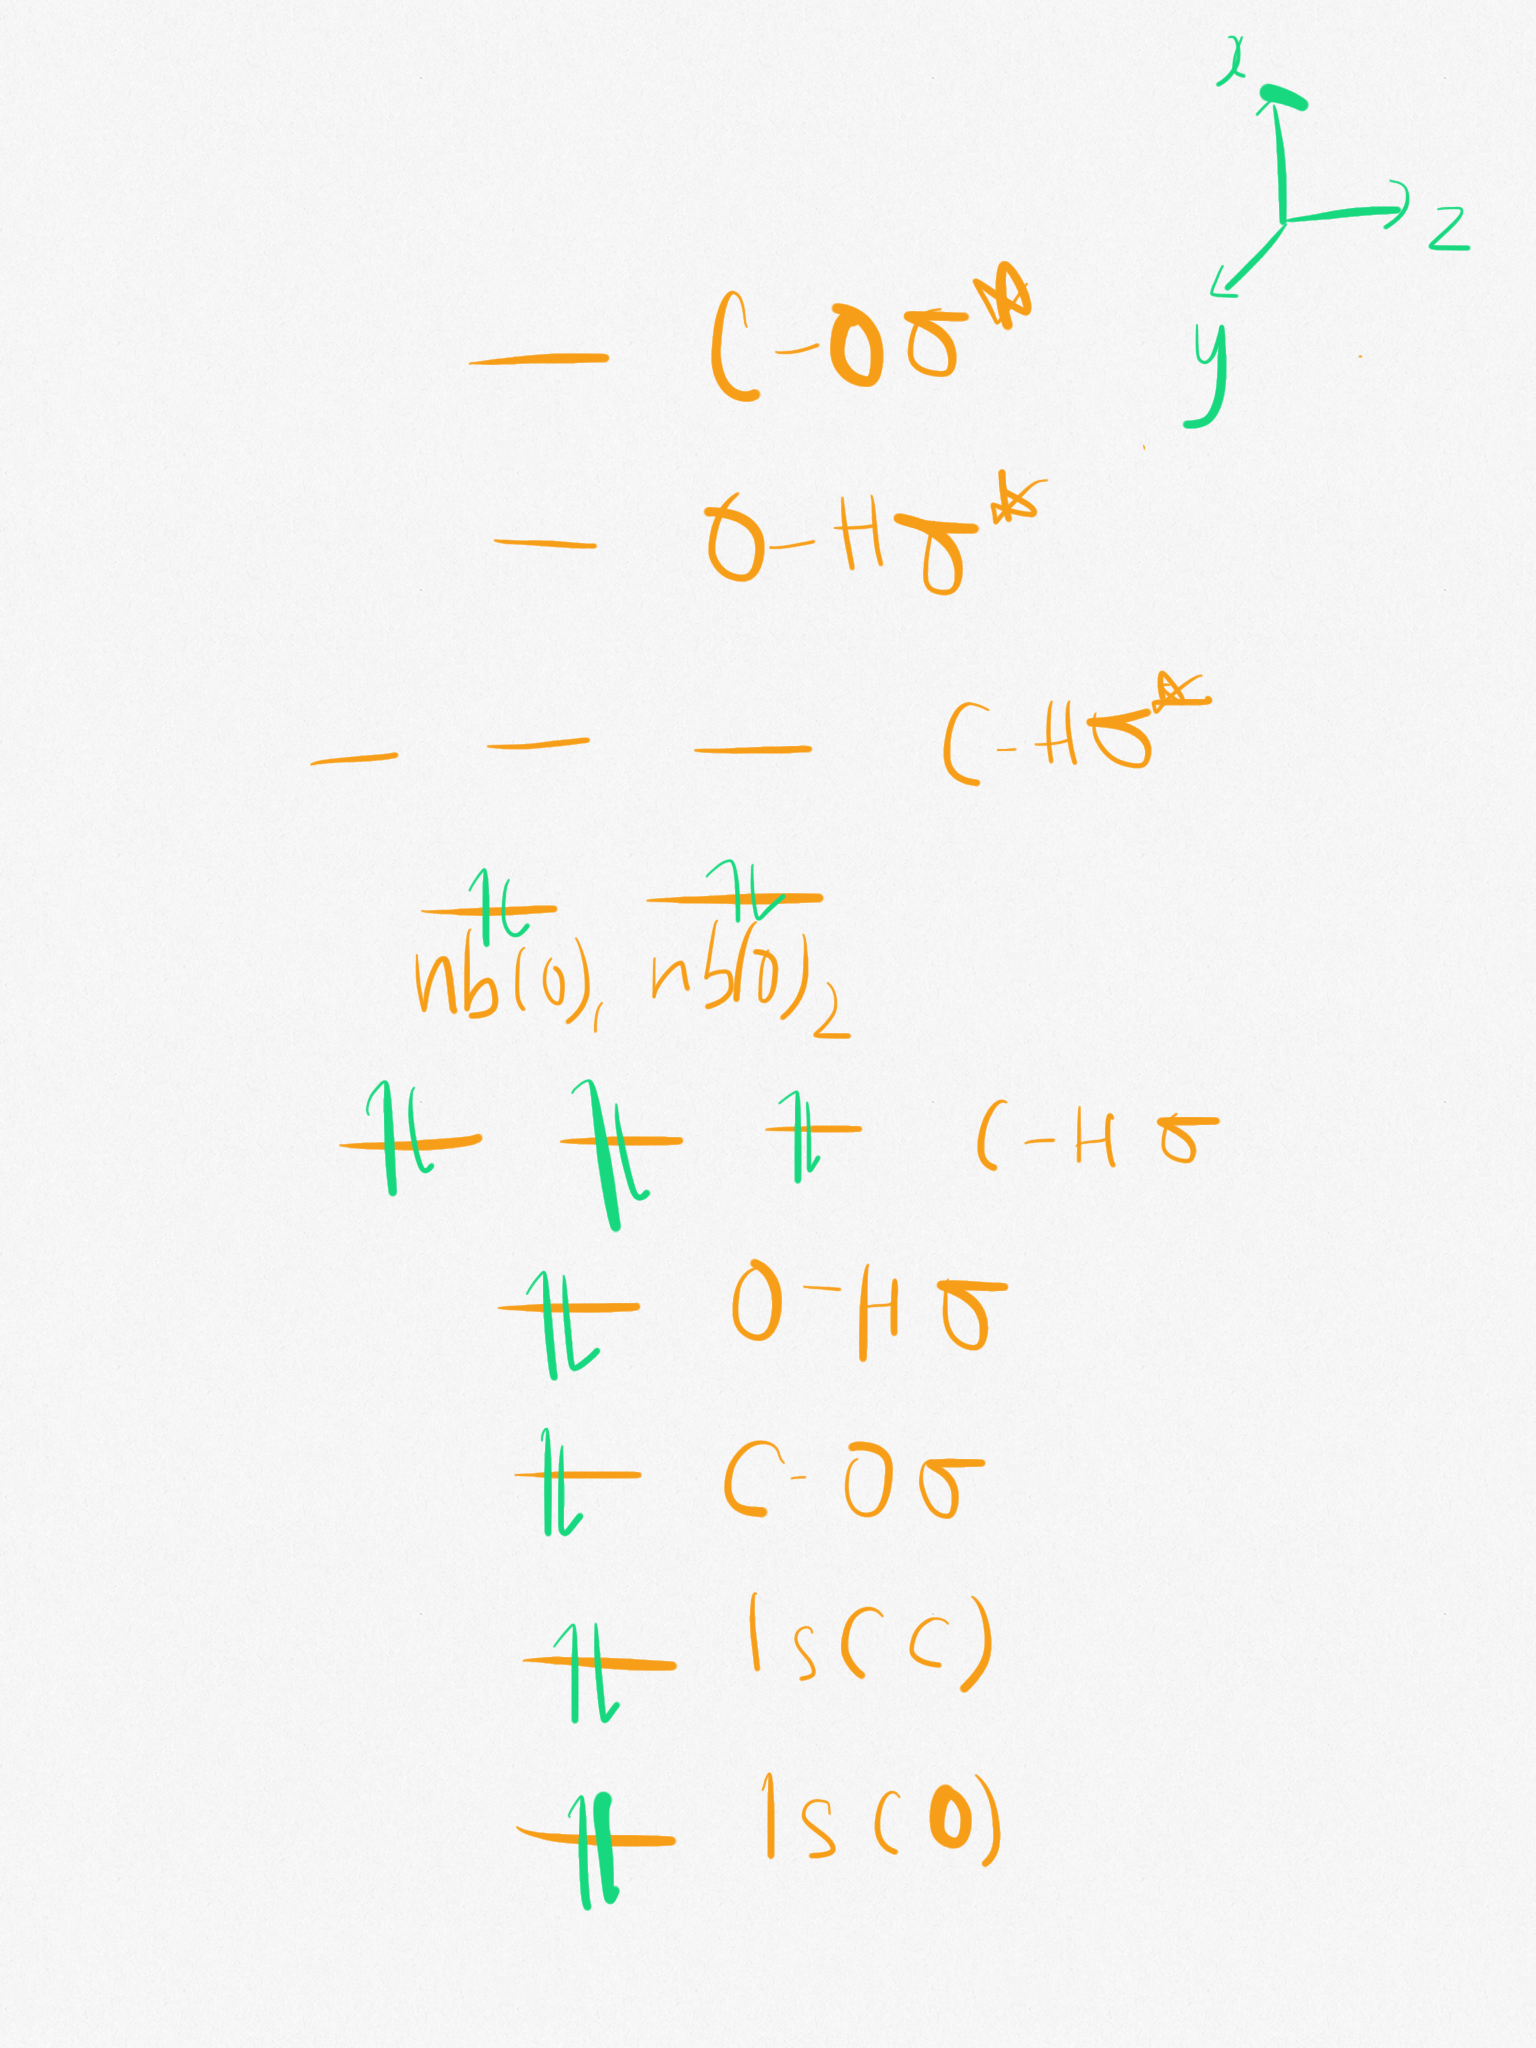 x
z
y
C-O σ*
O-H σ*
C-H σ*
nb(O)₁ nb(O)₂
C-H σ
O-H σ
C-O σ
1s(C)
1s(O)